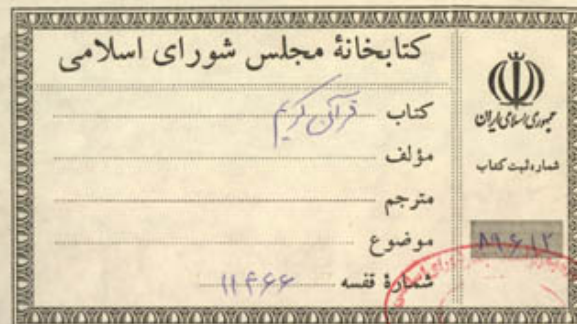 کتابخانهٔ مجلس شورای اسلامی
کتاب قرآن کریم
مؤلف
مترجم
موضوع
شمارهٔ قفسه ۱۱۴۶۶
جمهوری اسلامی ایران
شماره ثبت کتاب
۸۹۶۱۲